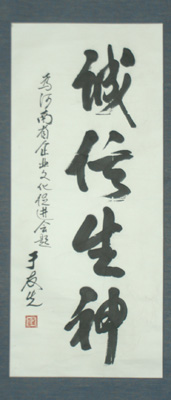 诚信生神
为河南省企业文化促进会题
于友先